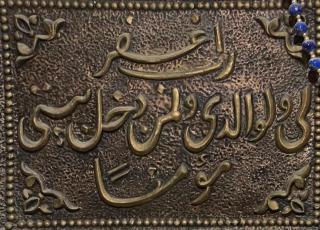 رب اغفر
لي ولوالدي ولمن دخل بيتي
مؤمنا